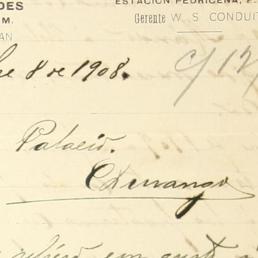 DES
ESTACION PEDRICEÑA, F.
M.
Gerente W. S. CONDUIT
AN
re 8 de 1908.
c/12/
Palacio.
Durango